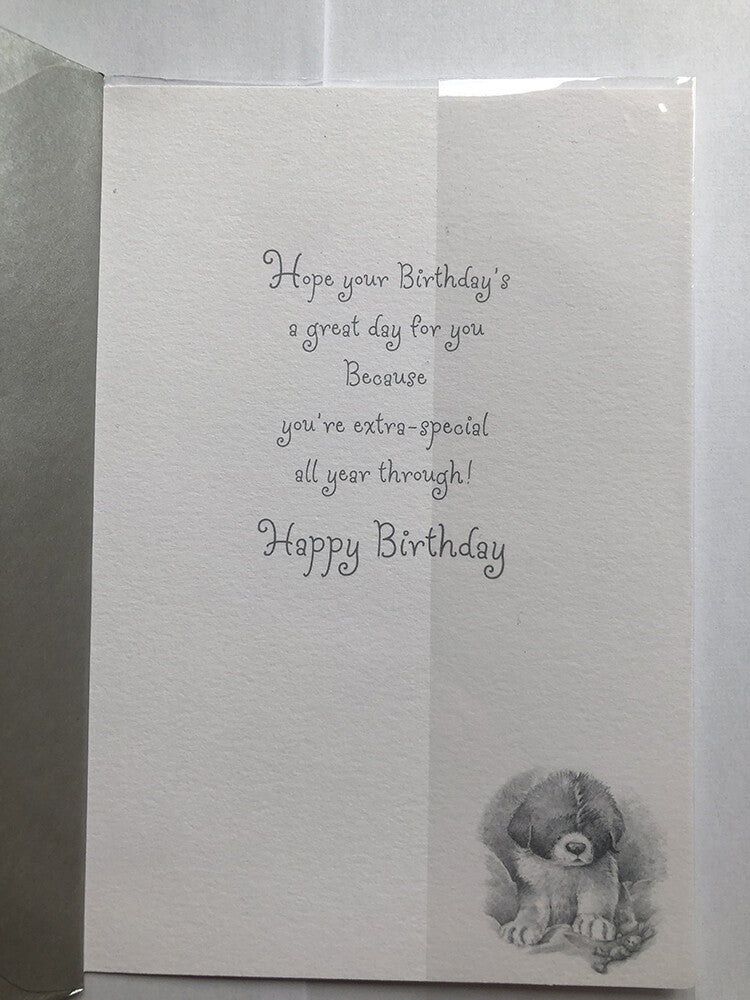 Hope your Birthday's
a great day for you
Because
you're extra-special
all year through!
Happy Birthday